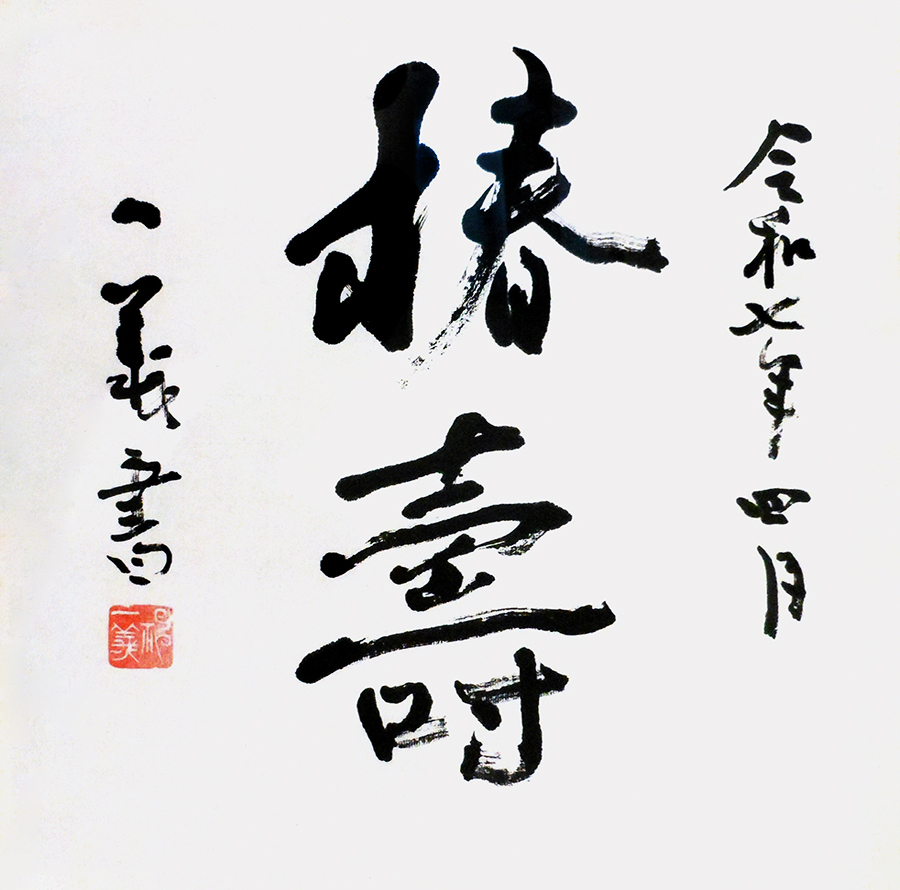 令和七年四月
椿壽
一義書
一義